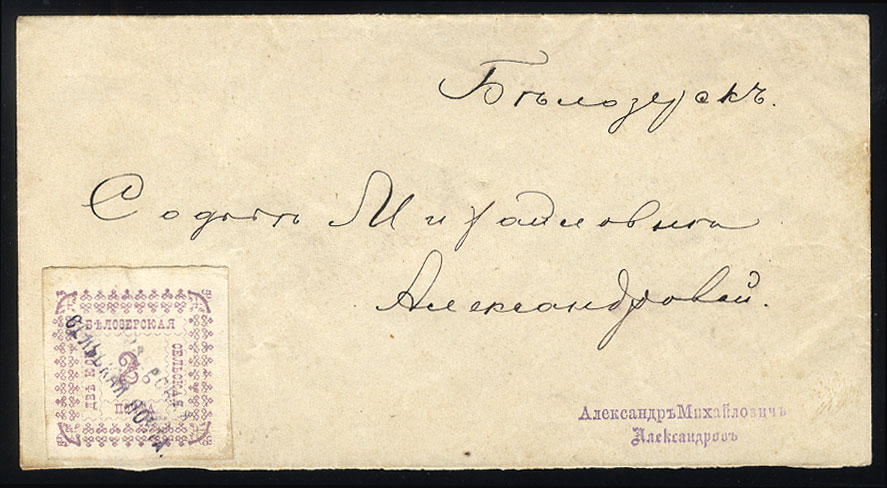 Бѣлозерскъ.
Софьѣ Михайловнѣ
Александровой.
БѢЛОЗЕРСКАЯ
СЕЛЬСКАЯ
ДВѢ
2
СЕЛЬСКАЯ ПОЧТА.
Александръ Михайловичъ
Александровъ